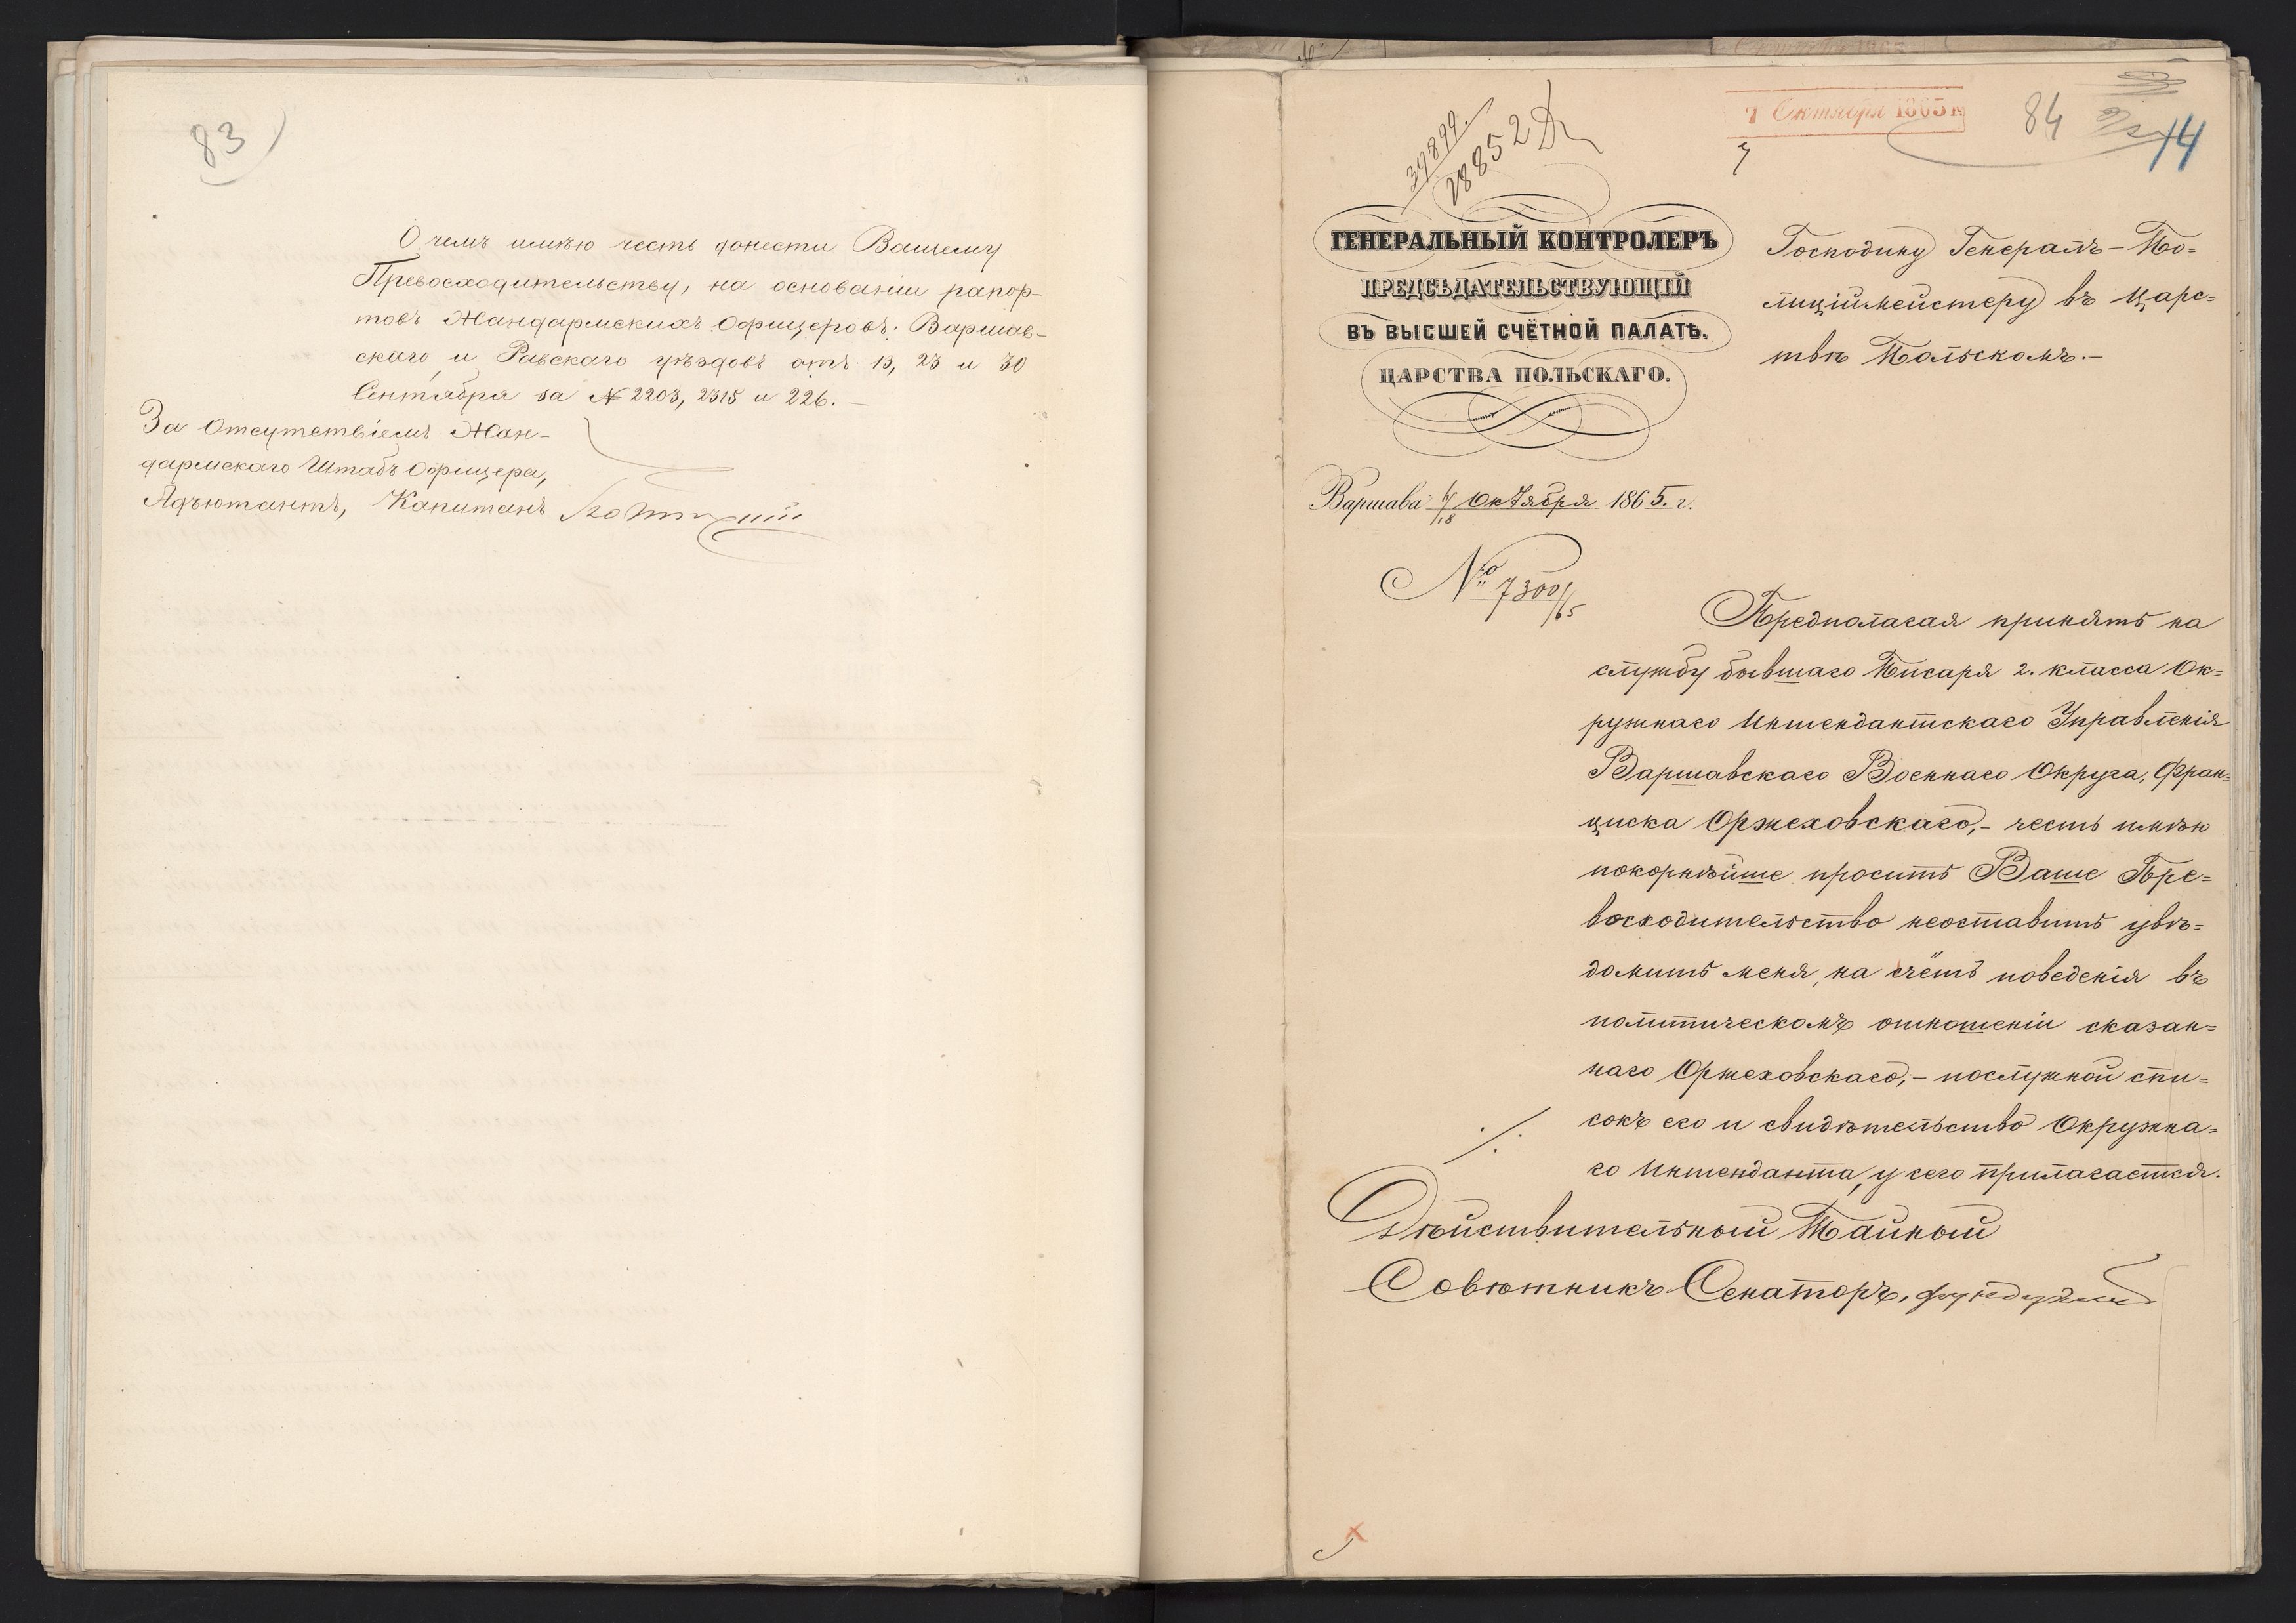 83
О чемъ имѣю честь донести Вашему
Превосходительству, на основаніи рапор-
товъ Жандармскихъ Офицеровъ: Варшав-
скаго и Равскаго уѣздовъ отъ 13, 23 и 30
Сентября за № 2203, 2315 и 226. –
За Отсутствіемъ Жан-
дармскаго Штабъ Офицера,
Адъютантъ, Капитанъ
7 Октября 1865 г.
84
14
39899.
28852
ГЕНЕРАЛЬНЫЙ КОНТРОЛЕРЪ
ПРЕДСѢДАТЕЛЬСТВУЮЩІЙ
ВЪ ВЫСШЕЙ СЧЁТНОЙ ПАЛАТѢ.
ЦАРСТВА ПОЛЬСКАГО.
Варшава 6/18 Октября 1865. г.
№ 7300/65
Господину Генералъ-По=
лиціймейстеру въ Царс=
твѣ Польскомъ. –
Предполагая принять на
службу бывшаго Писаря 2. класса Ок=
ружнаго Интендантскаго Управленія
Варшавскаго Военнаго Округа, Фран=
циска Оржеховскаго, – честь имѣю
покорнѣйше просить Ваше Пре=
восходительство неоставить увѣ=
домить меня, на счётъ поведенія въ
политическомъ отношеніи сказан=
наго Оржеховскаго, – послужной спи=
сокъ его и свидѣтельство Окружна=
го Интенданта, у сего прилагается.
Дѣйствительный Тайный
Совѣтникъ Сенаторъ, Фундуклей